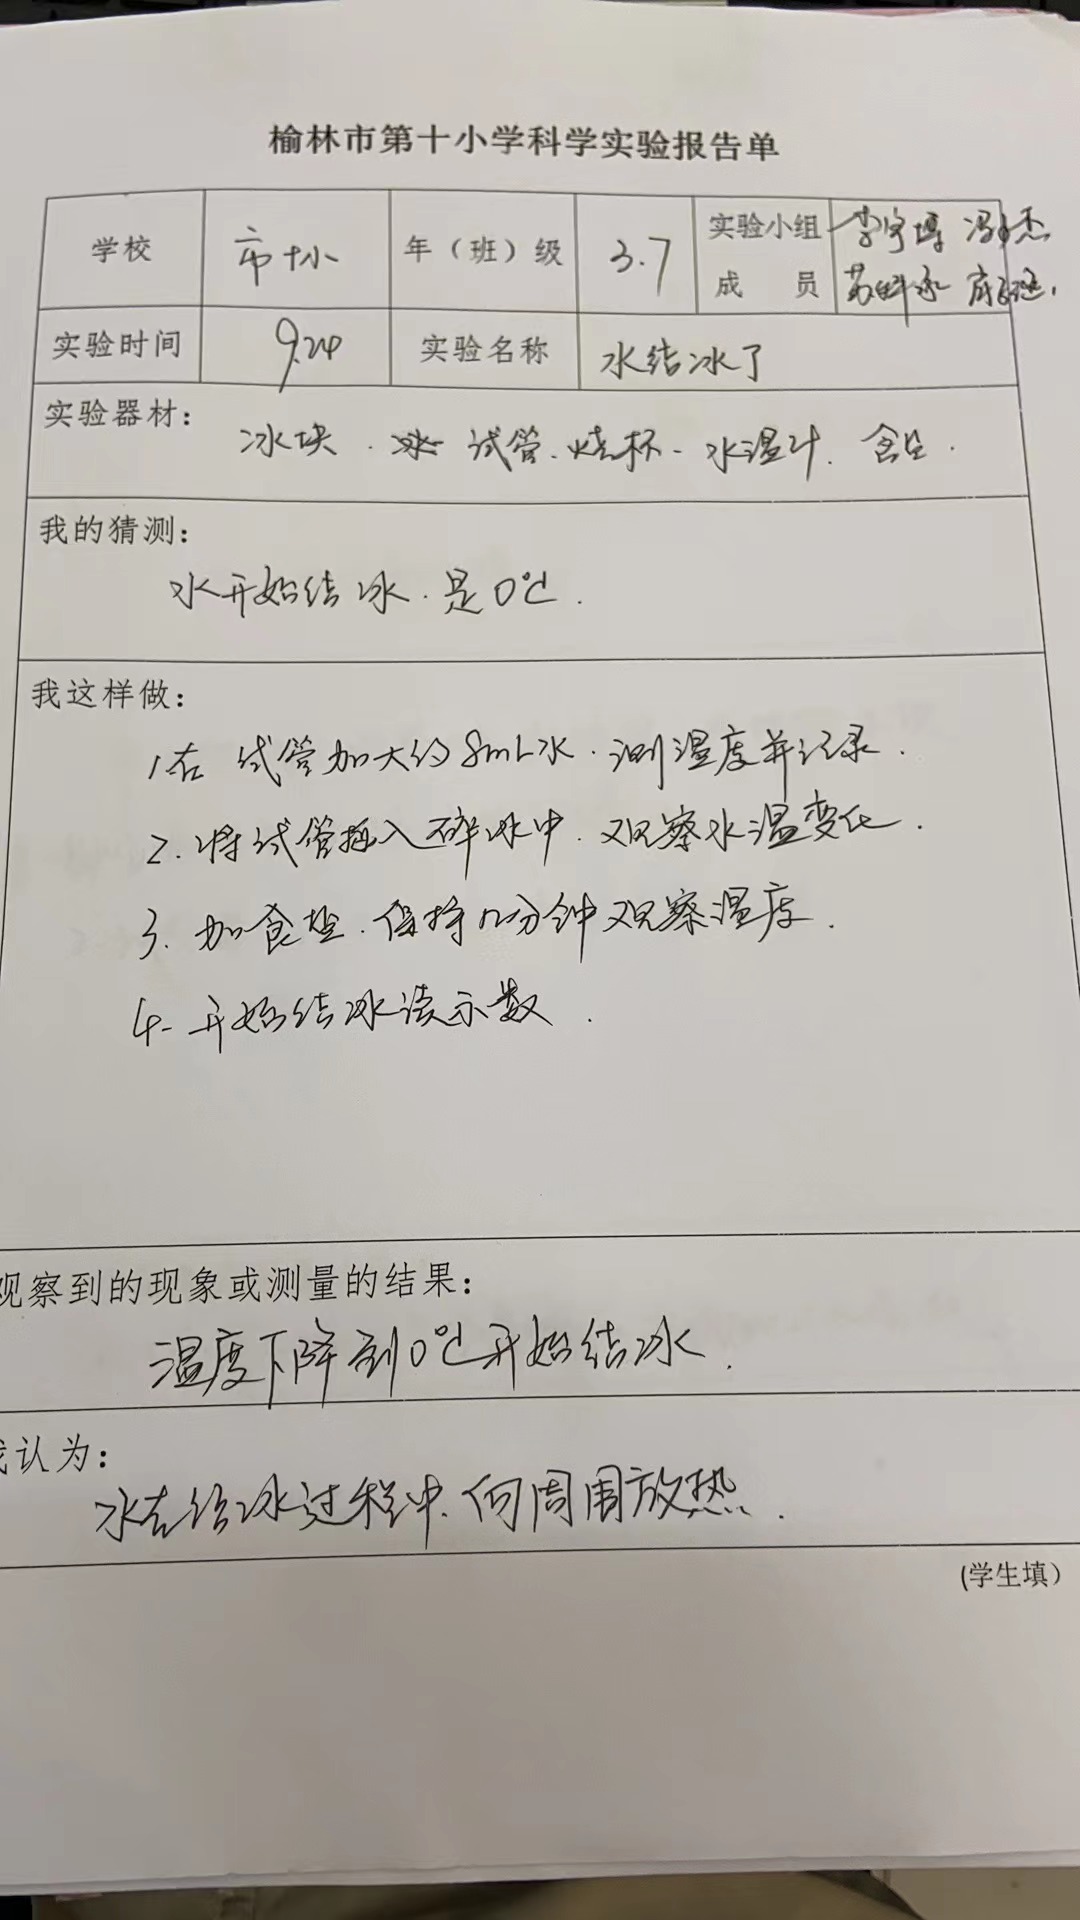 榆林市第十小学科学实验报告单
学校 市十小 年（班）级 3.7 实验小组成员 李宇博
实验时间 9.24 实验名称 水结冰了
实验器材：
冰块、试管、烧杯、水温计、食
我的猜测：
水开始结冰.是0℃.
我这样做：
1.在 试管加大约8mL水.测温度并记录.
2.将试管插入碎冰中.观察水温变化.
3.加食盐.保持几分钟观察温度.
4.开始结冰读示数.
观察到的现象或测量的结果：
温度下降到0℃开始结冰.
我认为：
水在结冰过程中.向周围放热.
(学生填）